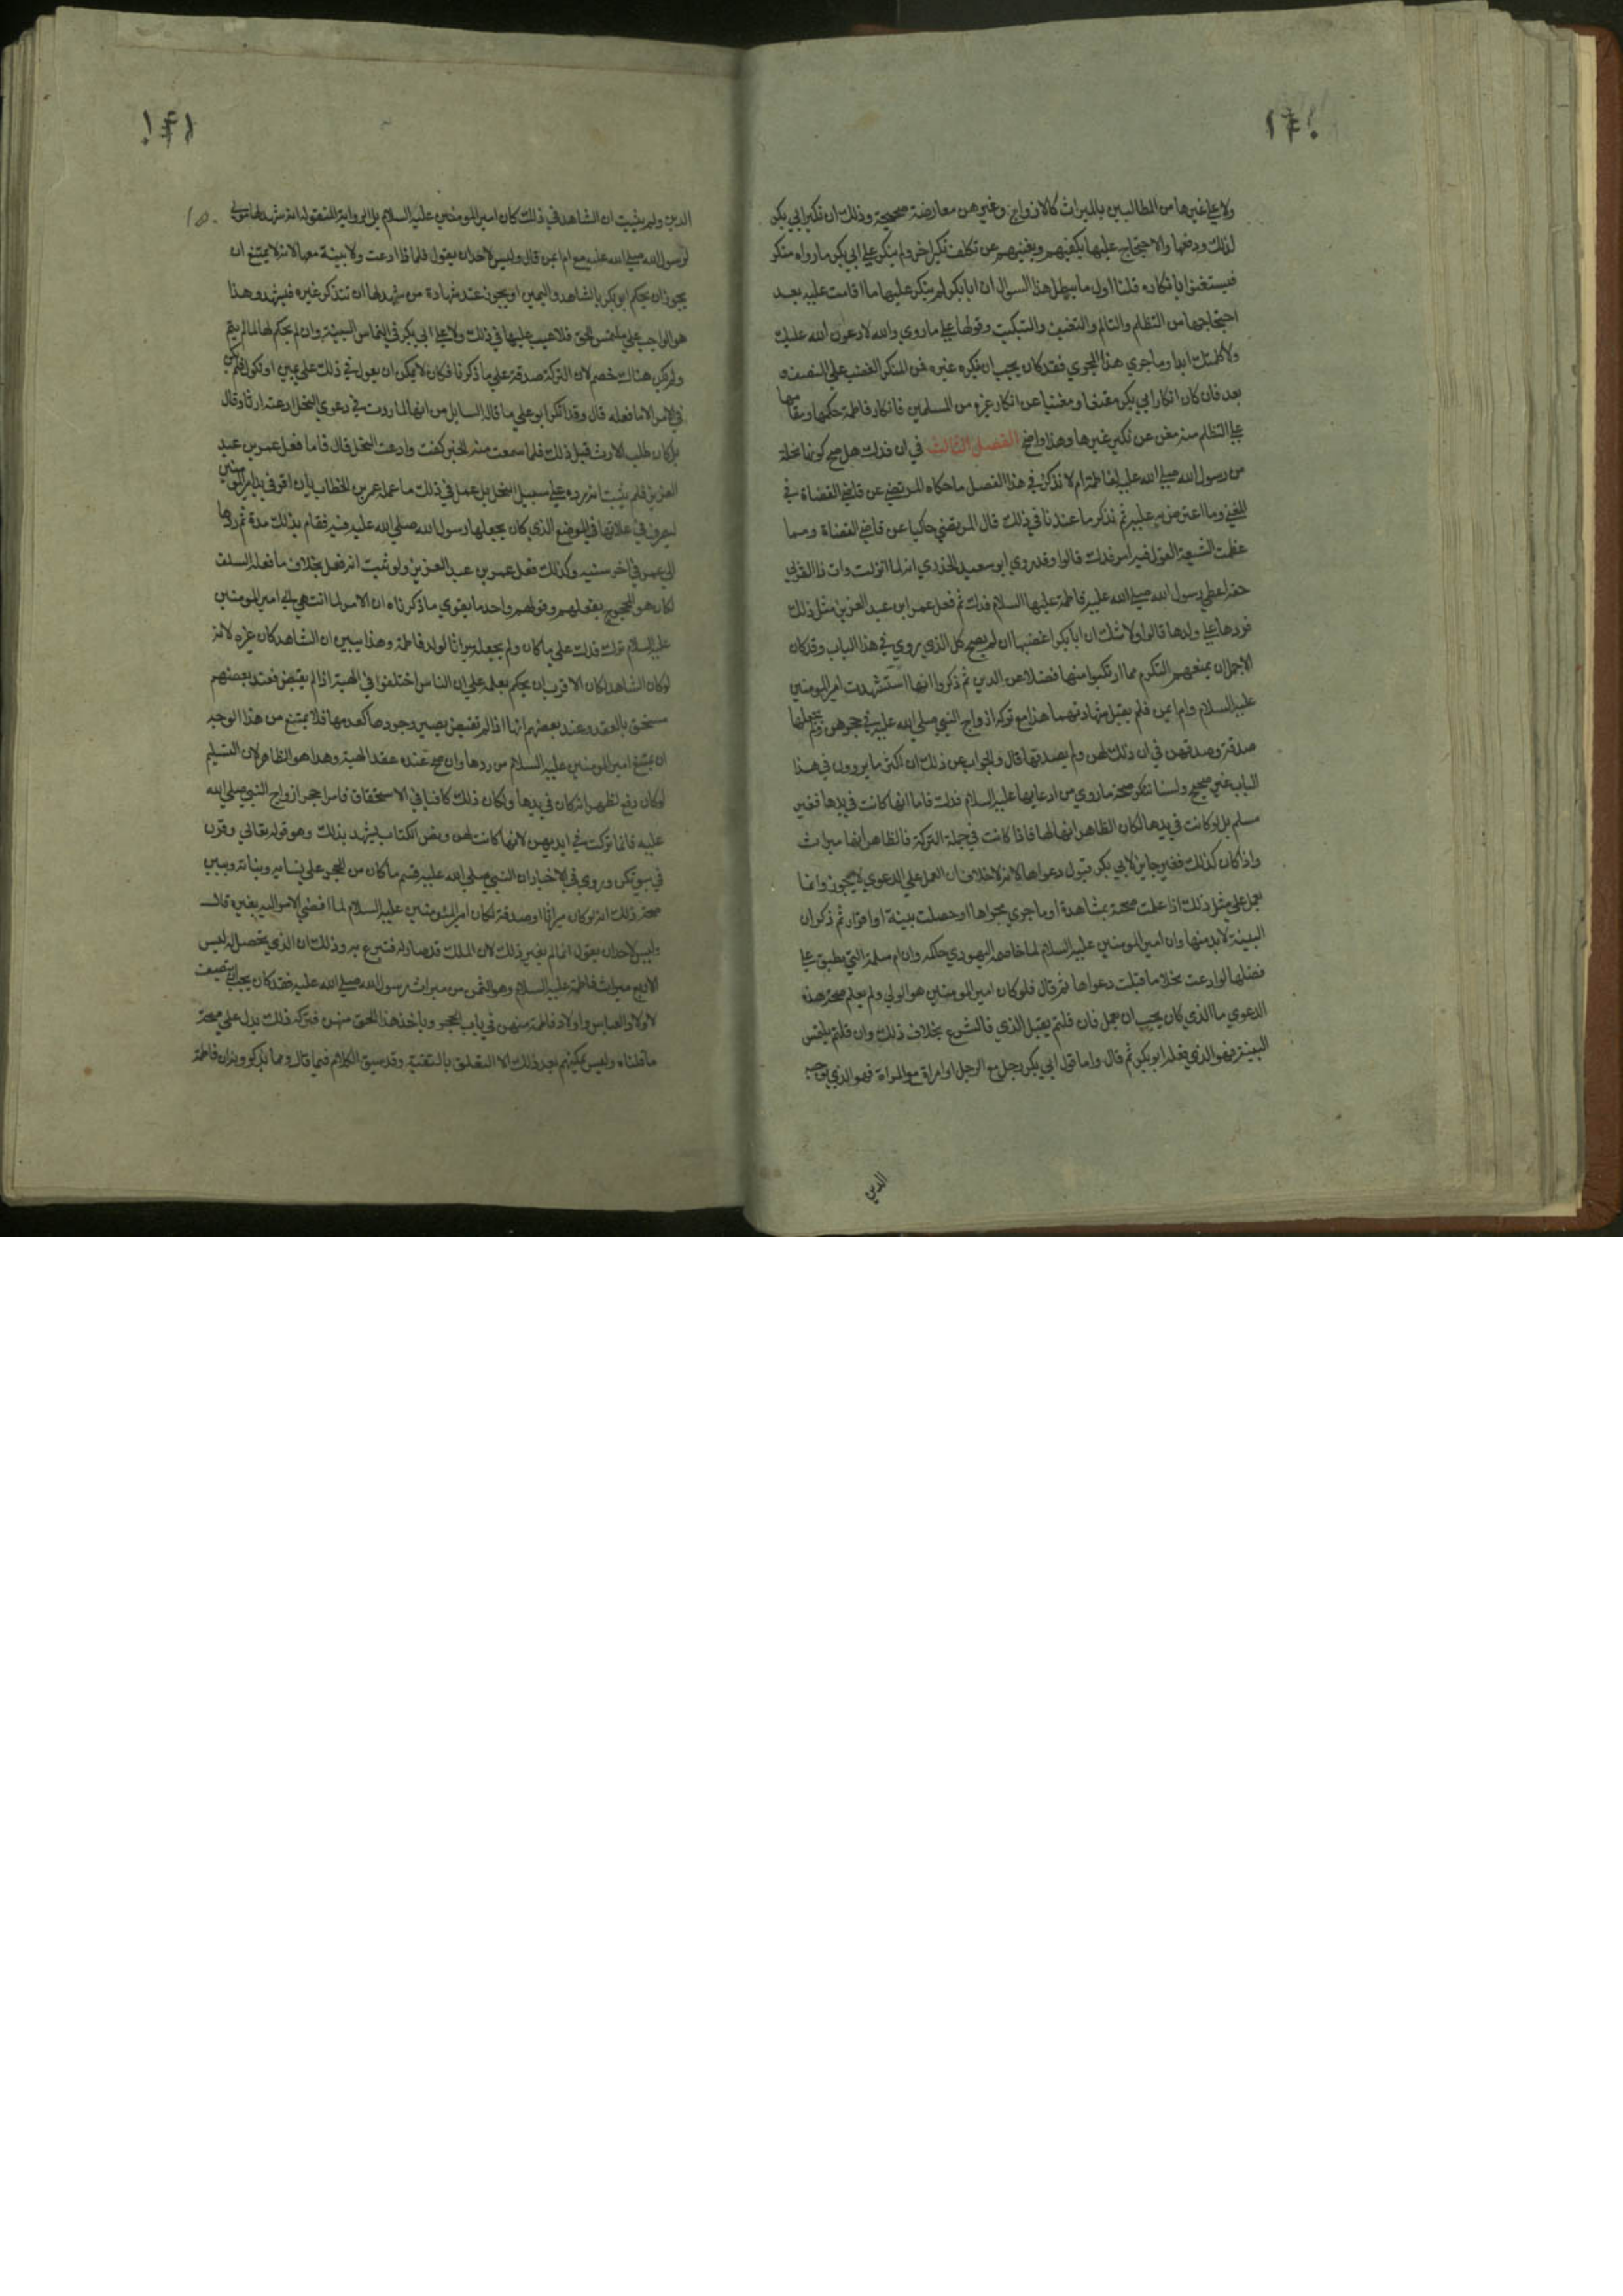 ولا علي غيرها من المطالبين بالميراث كالازواج وغيرهن معارضة صحيحة وذلك ان نكير ابي بكر
لذلك ودفعها والاحتجاج عليها يكفيهم ويغنيهم عن تكلف نكير اخر ولم ينكر علي ابي بكر ما رواه منكر
فيستغنوا بانكاره قلنا اول ما يبطل هذا السوال ان ابا بكر لم ينكر عليها ما اقامت عليه بعد
احتجاجها من التظلم والتالم والتعنيف والتبكيت وقولها علي ما روي والله لادعون الله عليك
ولا كلمتك ابدا وما جري هذا المجري فقد كان يجب ان ينكره غيره فمن المنكر الغضب علي المنصف
بعد فان كان انكار ابي بكر مقنعا ومغنيا عن انكار غيره من المسلمين فانكار فاطمة حكمها ومقامها
علي التظلم منه مغن عن نكير غيرها وهذا واضح الفصل الثالث في ان فدك هل صح كونها نحلة
من رسول الله صلي الله عليه لفاطمة ام لا نذكر في هذا الفصل ما حكاه المرتضي عن قاضي القضاة في
المغني وما اعترض به عليه ثم نذكر ما عندنا في ذلك قال المرتضي حاكيا عن قاضي القضاة ومما
عظمت الشيعة القول فيه امر فدك قالوا وقد روي ابو سعيد الخدري انه لما انزلت وات ذا القربي
حقه اعطي رسول الله صلي الله عليه فاطمة عليها السلام فدك ثم فعل عمر ابن عبد العزيز مثل ذلك
فردها علي ولدها قالوا ولا شك ان ابا بكر اغضبها ان لم يصح كل الذي يروي في هذا الباب وقد كان
الاجمل ان يمنعهم التكرم مما ارتكبوا منها فضلا عن الدين ثم ذكروا انها استشهدت امير المومنين
عليه السلام وام ايمن فلم يقبل شهادتهما هذا مع تركه ازواج النبي صلي الله عليه في حجرهن ولم يجعلها
صدقة وصدقهن في ان ذلك لهن ولم يصدقها قال والجواب عن ذلك ان اكثر ما يروون في هذا
الباب غير صحيح ولسنا ننكر صحة ما روي من ادعايها عليه السلام فدك فاما انها كانت في يدها فغير
مسلم بل لو كانت في يدها لكان الظاهر انها لها فاذا كانت في جملة التركة فالظاهر انها ميراث
واذا كان كذلك فغير جايز لابي بكر قبول دعواها لانه لا خلاف ان العمل علي الدعوي لا يجوز وانما
يعمل علي مثل ذلك اذا علمت صحته بمشاهدة او ما جري مجراها او حصلت بينة او اقرار ثم ذكر ان
البينة لا بد منها وان امير المومنين عليه السلام لما خاصمه اليهودي حاكمه وان ام سلمة التي يطبق علي
فضلها لو ادعت نخلا ما قبلت دعواها ثم قال فلو كان امير المومنين هو الوالي ولم يعلم صحة هذه
الدعوي ما الذي كان يجب ان يعمل فان قلتم يقبل الذي فالشرع بخلاف ذلك وان قلتم يلتمس
البينة فهو الذي فعله ابو بكر ثم قال واما قول ابي بكر رجل مع الرجل او امراة مع المراة فهو الذي يوجبه
الدين
الدين ولم يثبت ان الشاهد في ذلك كان امير المومنين عليه السلام بل الرواية المنقولة انه شهد لها مولي
لرسول الله صلي الله عليه مع ام ايمن قال وليس لاحد ان يقول فلماذا ادعت ولا بينة معها لانه لا يمتنع ان
يجوز ان يحكم ابو بكر بالشاهد واليمين او يجوز عند شهادة من شهد لها ان تتذكر غيره فيشهد وهذا
هو الواجب علي ملتمس الحق فلا عيب عليها في ذلك ولا علي ابي بكر في التماس البينة وان لم يحكم لها لما لم يتم
ولم يكن هناك خصم لان التركة صدقة علي ما ذكرنا فكان لا يمكن ان يعول في ذلك علي يمين او نكول فلم يكن
في الامر الا ما فعله قال وقد انكر ابو علي ما قاله السايل من انها لما ردت في دعوي النحل ادعته ارثا وقال
بل كان طلب الارث قبل ذلك فلما سمعت منه الخبر كفت وادعت النحل قال فاما فعل عمر بن عبد
العزيز فلم يثبت انه رده علي سبيل النحل بل عمل في ذلك ما عمله عمر بن الخطاب بان اقره في يد امير المومنين
ليصرف في غلاتها في الموضع الذي كان يجعلها رسول الله صلي الله عليه فيه فقام بذلك مدة ثم ردها
الي عمر في اخر سنيه وكذلك فعل عمر بن عبد العزيز ولو ثبت انه فعل بخلاف ما فعل السلف
لكان هو المحجوج بفعلهم وقولهم واحد ما يقوي ما ذكرناه ان الامر لما انتهي الي امير المومنين
عليه السلام ترك فدك علي ما كان ولم يجعله ميراثا لولد فاطمة وهذا يبين ان الشاهد كان غيره لانه
لو كان الشاهد لكان الاقرب ان يحكم بعلمه علي ان الناس اختلفوا في الهبة اذا لم يقبض فعند بعضهم
مستحق بالعقد وعند بعضهم انها اذا لم تقبض يصير وجودها كعدمها فلا يمتنع من هذا الوجه
ان يمتنع امير المومنين عليه السلام من ردها وان صح عنده عقد الهبة وهذا هو الظاهر لان التسليم
لو كان وقع لظهر انه كان في يدها ولكان ذلك كافيا في الاستحقاق فاما حجر ازواج النبي صلي الله
عليه فانما تركت في ايديهن لانها كانت لهن ونص الكتاب يشهد بذلك وهو قوله تعالي وقرن
في بيوتكن وروي في الاخبار ان النبي صلي الله عليه قسم ما كان من الحجر علي نسايه وبناته ويبين
صحة ذلك انه لو كان ميراثا او صدقة لكان امير المؤمنين عليه السلام لما افضي الامر اليه يغيره قال
وليس لاحد ان يقول انما لم يغير ذلك لان الملك قد صار له فتبرع به وذلك ان الذي يحصل له ليس
الا ربع ميراث فاطمة عليه السلام وهو الثمن من ميراث رسول الله صلي الله عليه فقد كان يجب ان ينتصف
لاولاد العباس واولاد فاطمة منهن في باب الحجر وياخذ هذا الحق منهن فتركه ذلك يدل علي صحة
ما قلناه وليس يمكنهم بعد ذلك الا التعلق بالتقية وقد سبق الكلام فيها قال ومما يذكرونه ان فاطمة